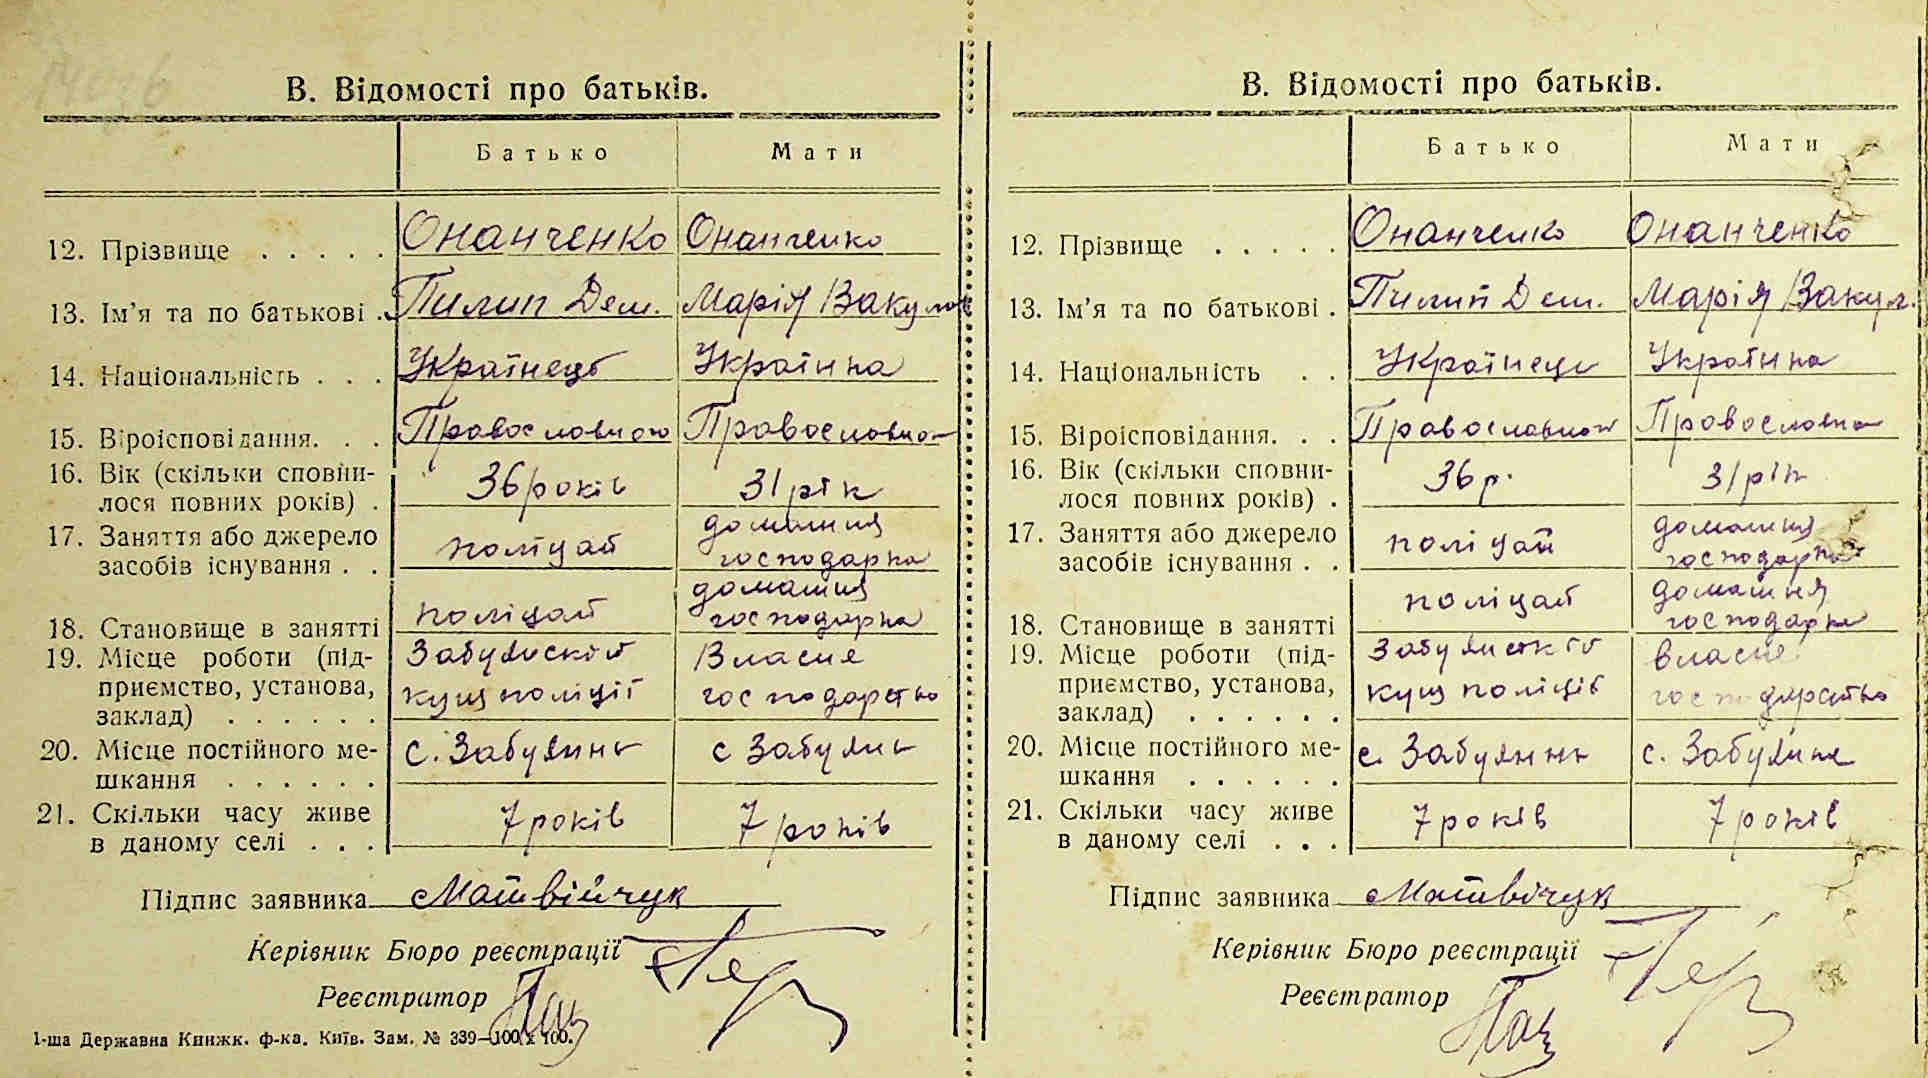 В. Відомості про батьків.
Батько Мати
12. Прізвище . . . . . Онанченко Онанченко
13. Ім'я та по батькові . Пилип Дем. Марія Вакулов
14. Національність . . . Українець Українка
15. Віроісповідання. . . Православного Православна
16. Вік (скільки сповни-
лося повних років) . 36 років 31 рік
17. Заняття або джерело
засобів існування . . поліцай домашня господарка
18. Становище в занятті поліцай домашня господарка
19. Місце роботи (під-
приємство, установа,
заклад) . . . . . . Забуянский кущ поліції Власне господарство
20. Місце постійного ме-
шкання . . . . . . с. Забуянь с Забуянь
21. Скільки часу живе
в даному селі . . . 7 років 7 років
Підпис заявника Матвійчук
Керівник Бюро реєстрації
Реєстратор
1-ша Державна Книжк. ф-ка. Київ. Зам. № 339—100 х 100.
В. Відомості про батьків.
Батько Мати
12. Прізвище . . . . . Онанченко Онанченко
13. Ім'я та по батькові . Пилип Дем. Марія Вакул.
14. Національність . . Українець Українка
15. Віроісповідання. . . Православной Православна
16. Вік (скільки сповни-
лося повних років) . 36 р. 31 рік
17. Заняття або джерело
засобів існування . . поліцай домашня господарка
18. Становище в занятті поліцай домашня господарка
19. Місце роботи (під-
приємство, установа,
заклад) . . . . . . Забуянский кущ поліції власне господарство
20. Місце постійного ме-
шкання . . . . . . с. Забуянь с. Забуяння
21. Скільки часу живе
в даному селі . . . 7 років 7 років
Підпис заявника Матвічук
Керівник Бюро реєстрації
Реєстратор